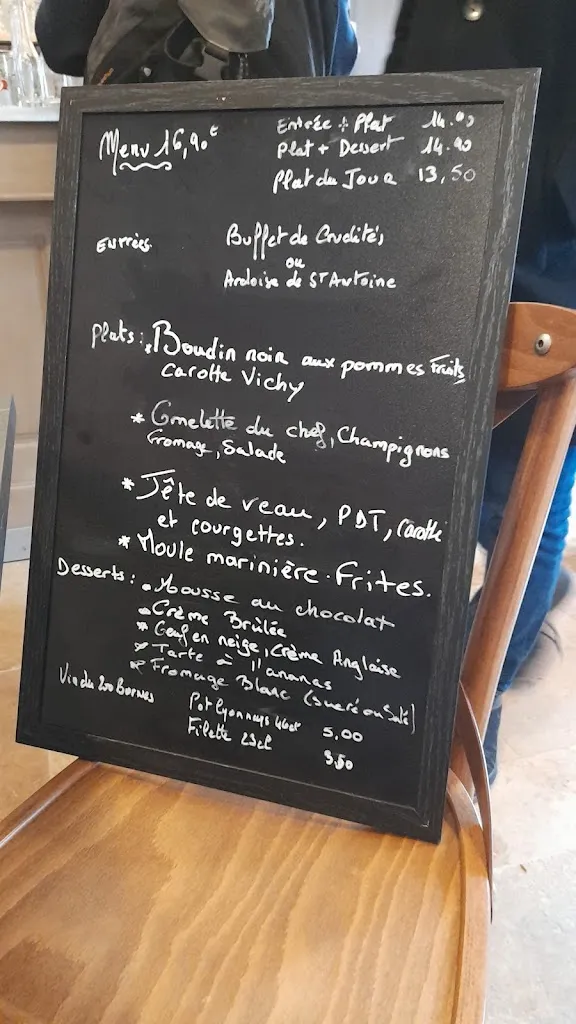 Menu 16,90€
Entrée + Plat 14.90
Plat + Dessert 14.90
Plat du Jour 13,50
Entrées
Buffet de Crudités
ou
Ardoise de St Antoine
Plats : * Boudin noir aux pommes Fruits
Carotte Vichy
* Omelette du chef, Champignons
fromage, Salade
* Tête de veau, PDT, Carotte
et courgettes.
* Moule marinière. Frites.
Desserts : * Mousse au chocolat
* Crème Brûlée
* Oeuf en neige, Crème Anglaise
* Tarte à l'ananas
* Fromage Blanc (sucré ou Salé)
Vin du 200 Bornes
Pot lyonnais 46cl 5,00
Fillette 25cl 3,50